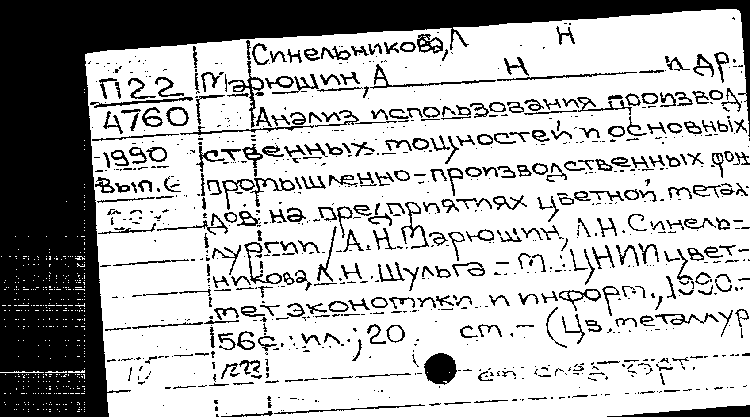 Синельникова, Л Н
П22 Марюшин, А Н и др.
4760 Анализ использования производ-
1990 ственных мощностей и основных
Вып.6 промышленно-производственных фон
дов на предприятиях цветной метал
лургии / А.Н.Марюшин, Л.Н.Синель-
никова, Л.Н.Шульга.- М.: ЦНИИцвет-
мет экономики и информ., 1990.-
56с.: ил.; 20 см.- (Цв.металлург
10 1223 см. след. карт.